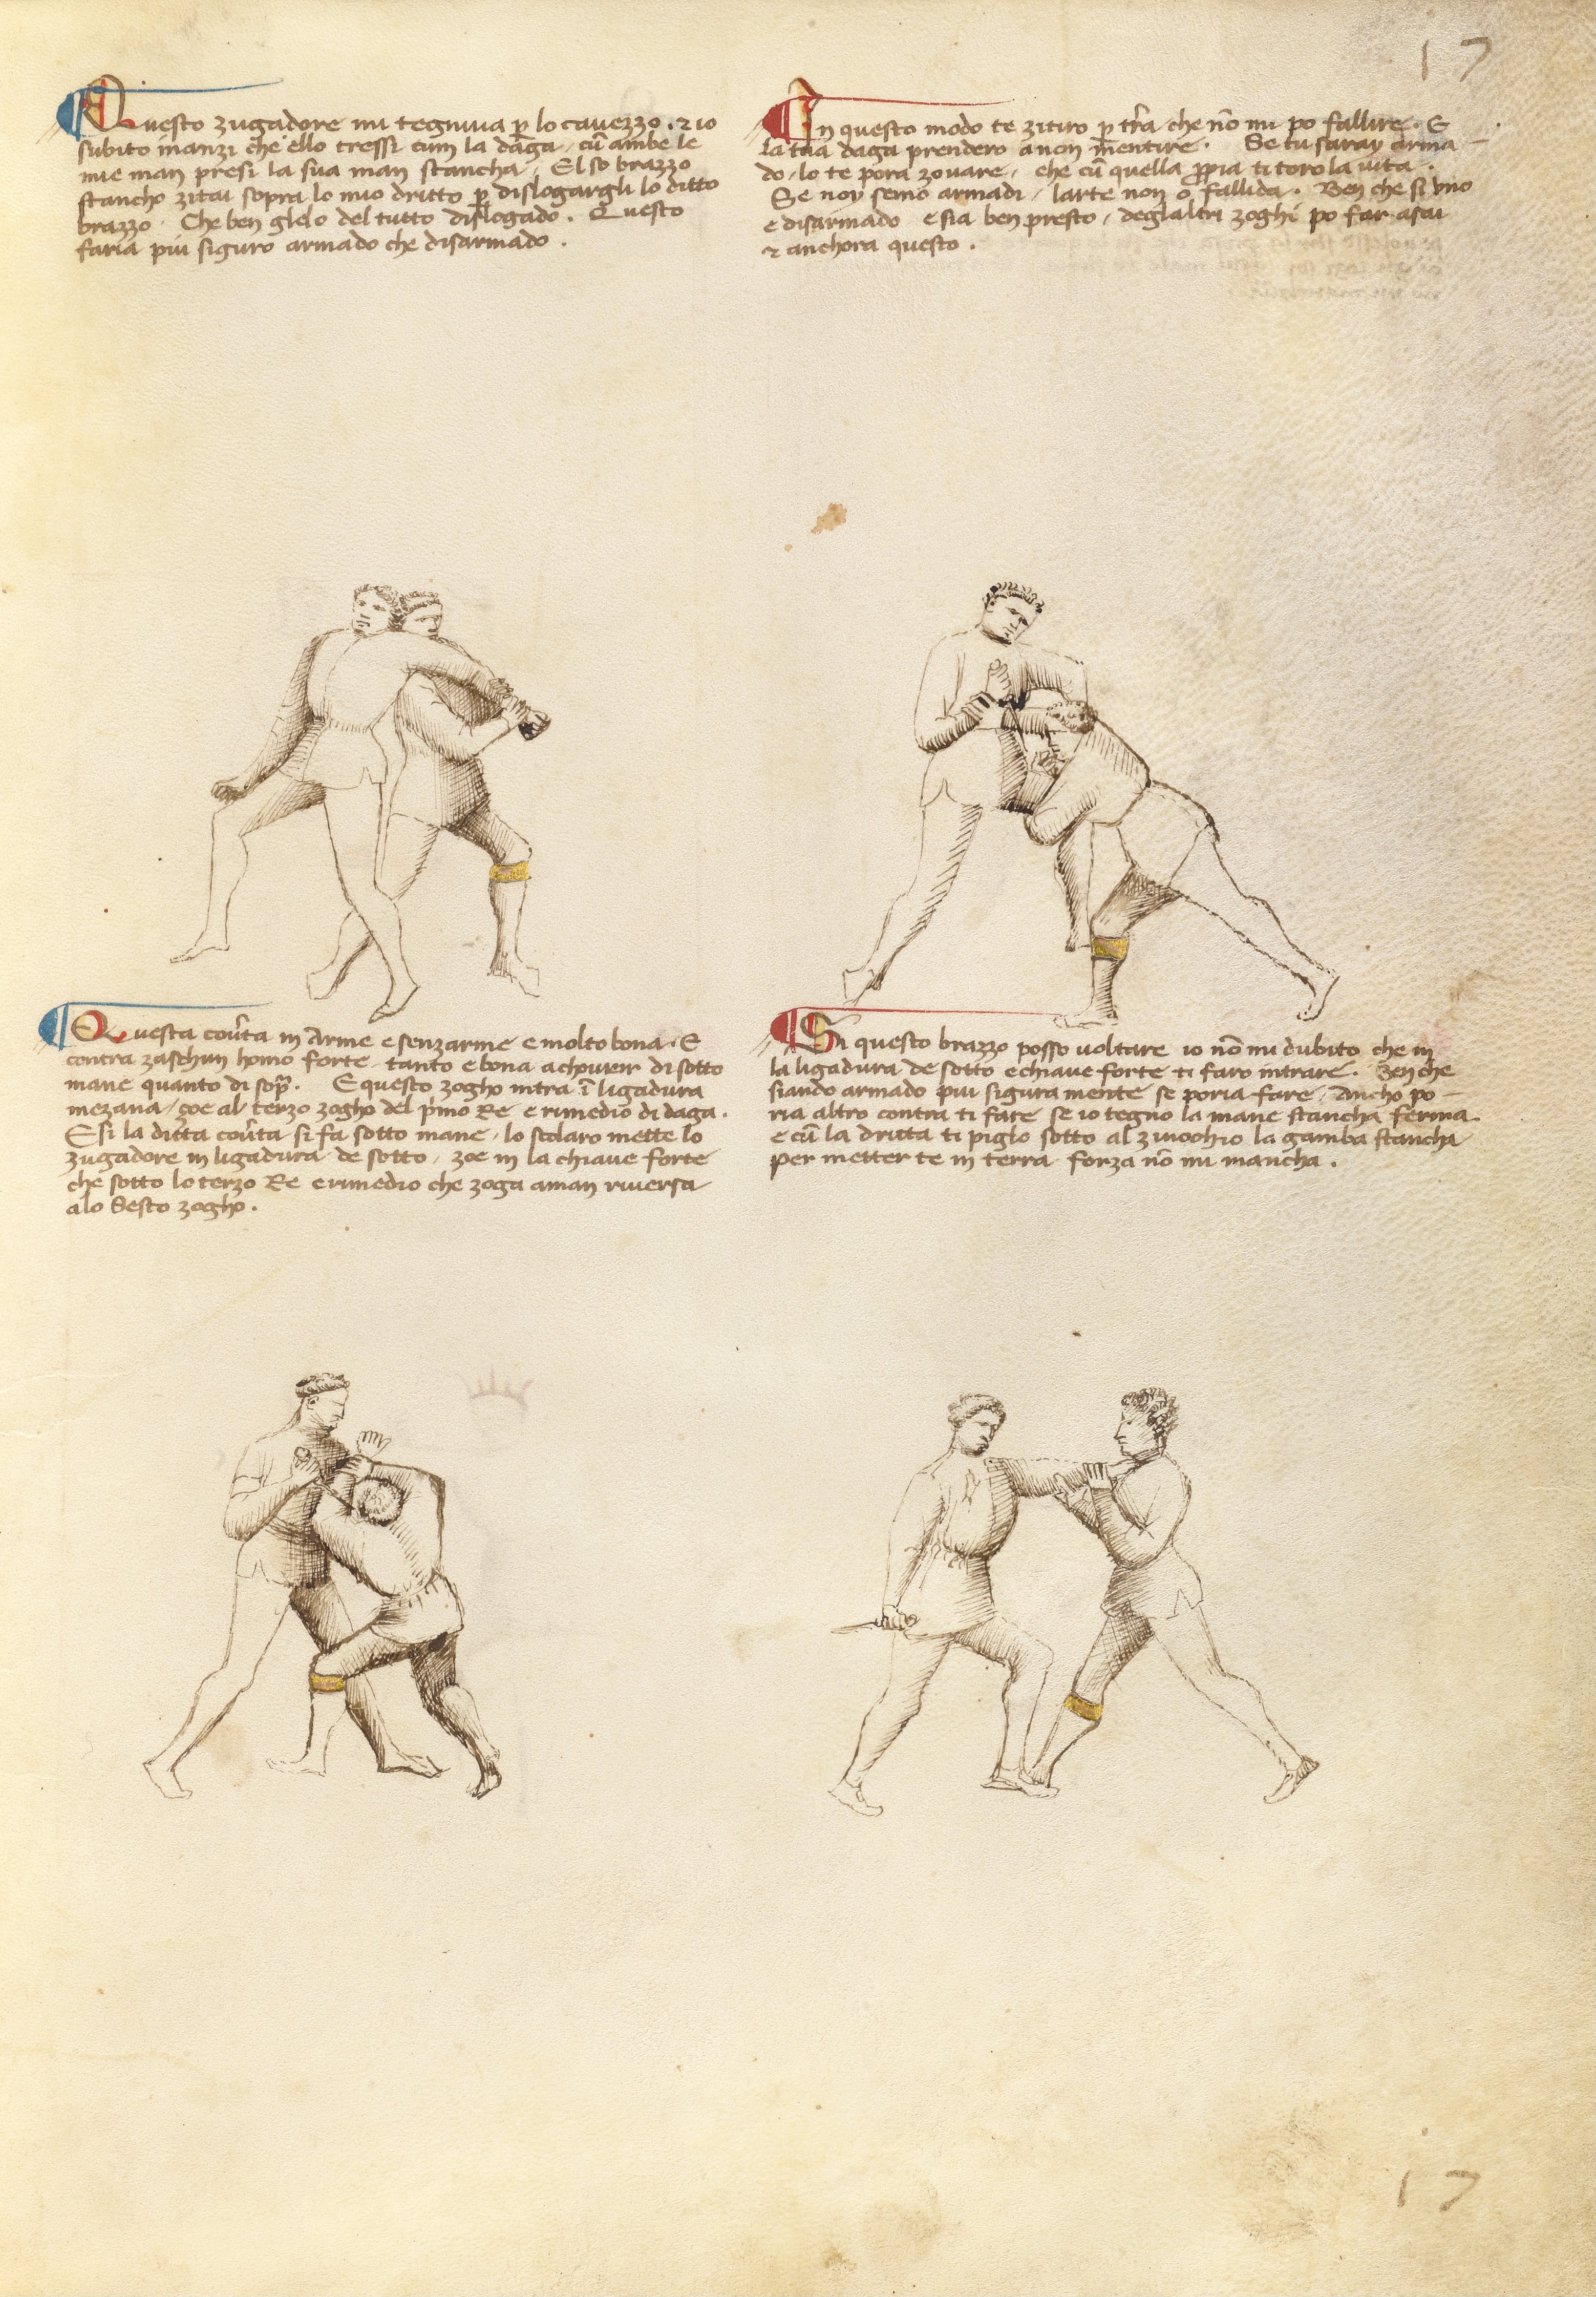 17
Questo zugadore mi tegniva p̄ lo cavezzo. ⁊ io
subito inanzi che ello tressi cum la daga, cū ambe le
mie man presi la sua man stancha, El so brazzo
stancho zitai sopra lo mio dritto p̄ dislogargli lo ditto
brazzo. Che ben glelo del tutto dislogado. Questo
faria piu siguro armado che disarmado.
In questo modo te zitiro p̄ tr̄a che nō mi po fallire. E
la tua daga prendero a non mentire. Se tu saray arma-
do, lo te pora zovare, che cū quella ꝓpia ti toro la vita.
Se noy semo armadi, larte non o fallida. Ben che si uno
e disarmado e sia ben presto, deglaltri zoghi po far asai
⁊ anchora questo.
Questa coūta in Arme e senzarme e molto bona. E
contra zaschun homo forte tanto e bona a chovrir di sotto
mane quanto di sop̄. E questo zogho intra ī ligadura
mezana, çoe al terzo zogho del p̄mo Re e rimedio di daga.
E si la ditta coūta si fa sotto mane, lo scolaro mette lo
zugadore in ligadura de sotto, zoe in la chiave forte
che sotto lo terzo Re e rimedio che zoga a man riversa
a lo Sesto zogho.
Si questo brazzo posso voltare io nō mi dubito che in
la ligadura de sotto e chiave forte ti faro intrare. Ben che
siando armado piu sigura mente se poria fare. Ancho po-
ria altro contra ti fare se io tegno la mane stancha ferma.
e cū la dritta ti piglo sotto al zinochio la gamba stancha
per metter te in terra forza nō mi mancha.
17